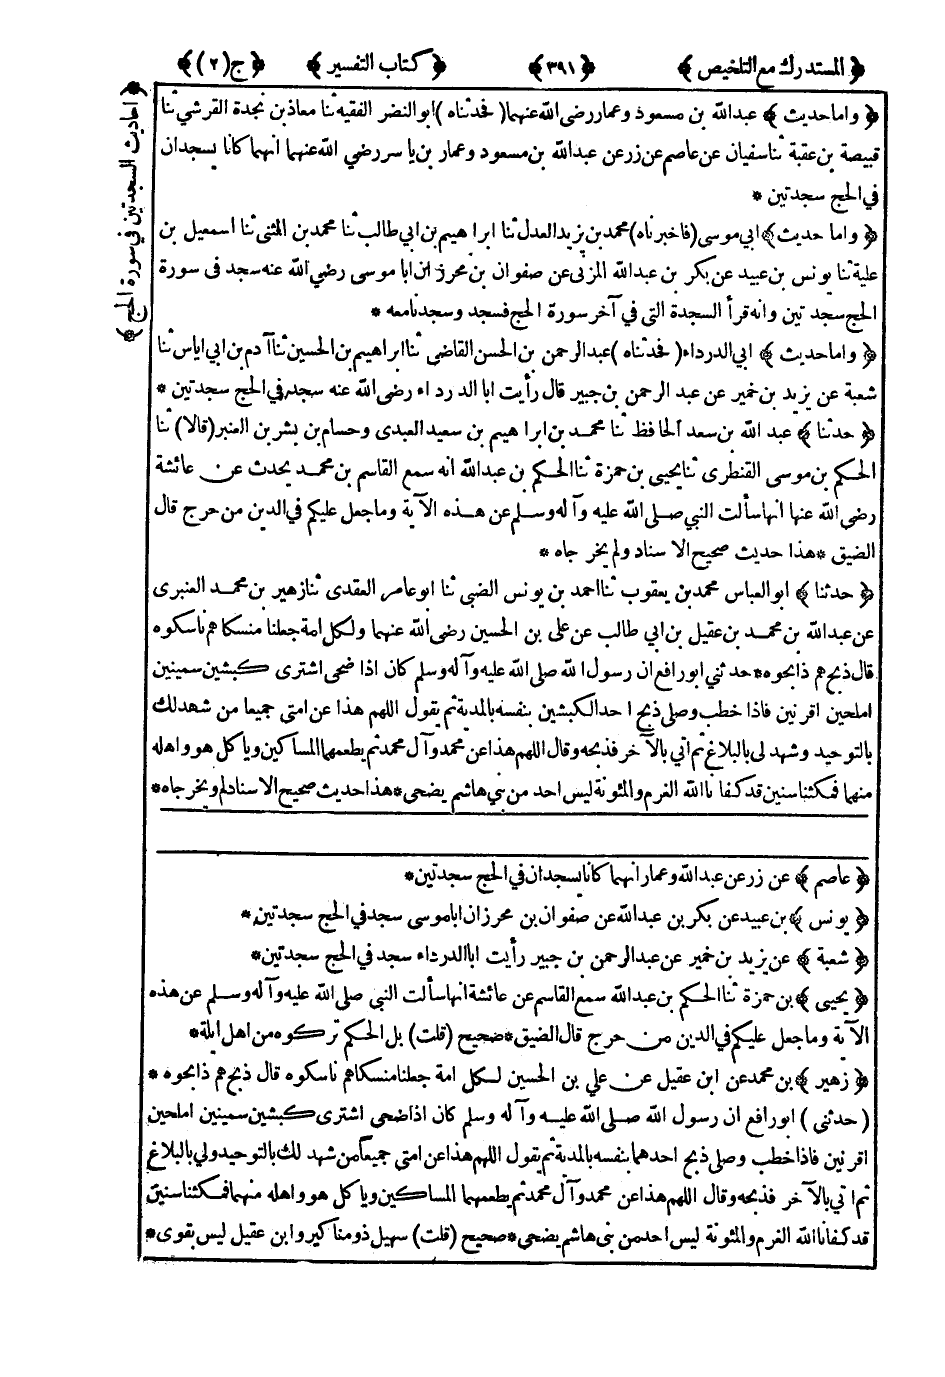 ﴿ المستدرك مع التلخيص ﴾ ﴿ ٣٩١ ﴾ ﴿ كتاب التفسير ﴾ ﴿ ج (٢) ﴾
﴿ احاديث السجدتين في سورة الحج ﴾
﴿ واما حديث ﴾ عبدالله بن مسعود وعمار رضى الله عنهما ( فحدثناه ) ابو النضر الفقيه ثنا معاذ بن نجدة القرشي ثنا
قبيصة بن عقبة ثنا سفيان عن عاصم عن زر عن عبدالله بن مسعود وعمار بن ياسر رضي الله عنهما انهما كانا يسجدان
في الحج سجدتين *
﴿ واما حديث ﴾ ابي موسى (فاخبرناه) محمد بن يزيد العدل ثنا ابراهيم بن ابي طالب ثنا محمد بن المثنى ثنا اسمعيل بن
علية ثنا يونس بن عبيد عن بكر بن عبدالله المزنى عن صفوان بن محرز ان ابا موسى رضي الله عنه سجد فى سورة
الحج سجدتين وانه قرأ السجدة التى في آخر سورة الحج فسجد وسجدنا معه *
﴿ واما حديث ﴾ ابي الدرداء ( فحدثناه ) عبدالرحمن بن الحسن القاضى ثنا ابراهيم بن الحسين ثنا آدم بن ابي اياس ثنا
شعبة عن يزيد بن خمير عن عبد الرحمن بن جبير قال رأيت ابا الدرداء رضى الله عنه سجد في الحج سجدتين *
﴿ حدثنا ﴾ عبد الله بن سعد الحافظ ثنا محمد بن ابراهيم بن سعيد العبدى وحسام بن بشر بن العنبر (قالا) ثنا
الحكم بن موسى القنطرى ثنا يحيى بن حمزة ثنا الحكم بن عبدالله انه سمع القاسم بن محمد يحدث عن عائشة
رضى الله عنها انها سألت النبي صلى الله عليه وآله وسلم عن هذه الآية وما جعل عليكم في الدين من حرج قال
الضيق * هذا حديث صحيح الاسناد ولم يخرجاه *
﴿ حدثنا ﴾ ابو العباس محمد بن يعقوب ثنا احمد بن يونس الضبى ثنا ابو عامر العقدى ثنا زهير بن محمد العنبرى
عن عبدالله بن محمد بن عقيل بن ابي طالب عن على بن الحسين رضى الله عنهما ولكل امة جعلنا منسكا هم ناسكوه
قال ذبح هم ذابحوه * حدثني ابو رافع ان رسول الله صلى الله عليه وآله وسلم كان اذا ضحى اشترى كبشين سمينين
املحين اقرنين فاذا خطب وصلى ذبح احد الكبشين بنفسه بالمدية ثم يقول اللهم هذا عن امتى جميعا من شهد لك
بالتوحيد وشهد لى بالبلاغ ثم اتي بالآخر فذبحه وقال اللهم هذا عن محمد وآل محمد ثم يطعمهما المساكين ويأكل هو واهله
منهما فمكثنا سنين قد كفانا الله الغرم والمئونة ليس احد من بني هاشم يضحى * هذا حديث صحيح الاسناد ولم يخرجاه *
﴿ عاصم ﴾ عن زر عن عبدالله وعمار انهما كانا يسجدان في الحج سجدتين *
﴿ يونس ﴾ بن عبيد عن بكر بن عبدالله عن صفوان بن محرز ان ابا موسى سجد في الحج سجدتين *
﴿ شعبة ﴾ عن يزيد بن خمير عن عبدالرحمن بن جبير رأيت ابا الدرداء سجد في الحج سجدتين *
﴿ يحيى ﴾ بن حمزة ثنا الحكم بن عبدالله سمع القاسم عن عائشة انها سألت النبي صلى الله عليه وآله وسلم عن هذه
الآية وما جعل عليكم في الدين من حرج قال الضيق * صحيح (قلت) بل الحكم تركوه من اهل ايلة *
﴿ زهير ﴾ بن محمد عن ابن عقيل عن علي بن الحسين لكل امة جعلنا منسكا هم ناسكوه قال ذبح هم ذابحوه *
( حدثنى ) ابو رافع ان رسول الله صلى الله عليه وآله وسلم كان اذا ضحى اشترى كبشين سمينين املحين
اقرنين فاذا خطب وصلى ذبح احدهما بنفسه بالمدية ثم يقول اللهم هذا عن امتى جميعا من شهد لك بالتوحيد ولي بالبلاغ
ثم اتي بالآخر فذبحه وقال اللهم هذا عن محمد وآل محمد ثم يطعمهما المساكين ويأكل هو واهله منهما فمكثنا سنين
قد كفانا الله الغرم والمئونة ليس احد من بنى هاشم يضحى * صحيح (قلت) سهيل ذو مناكير وابن عقيل ليس بقوى *